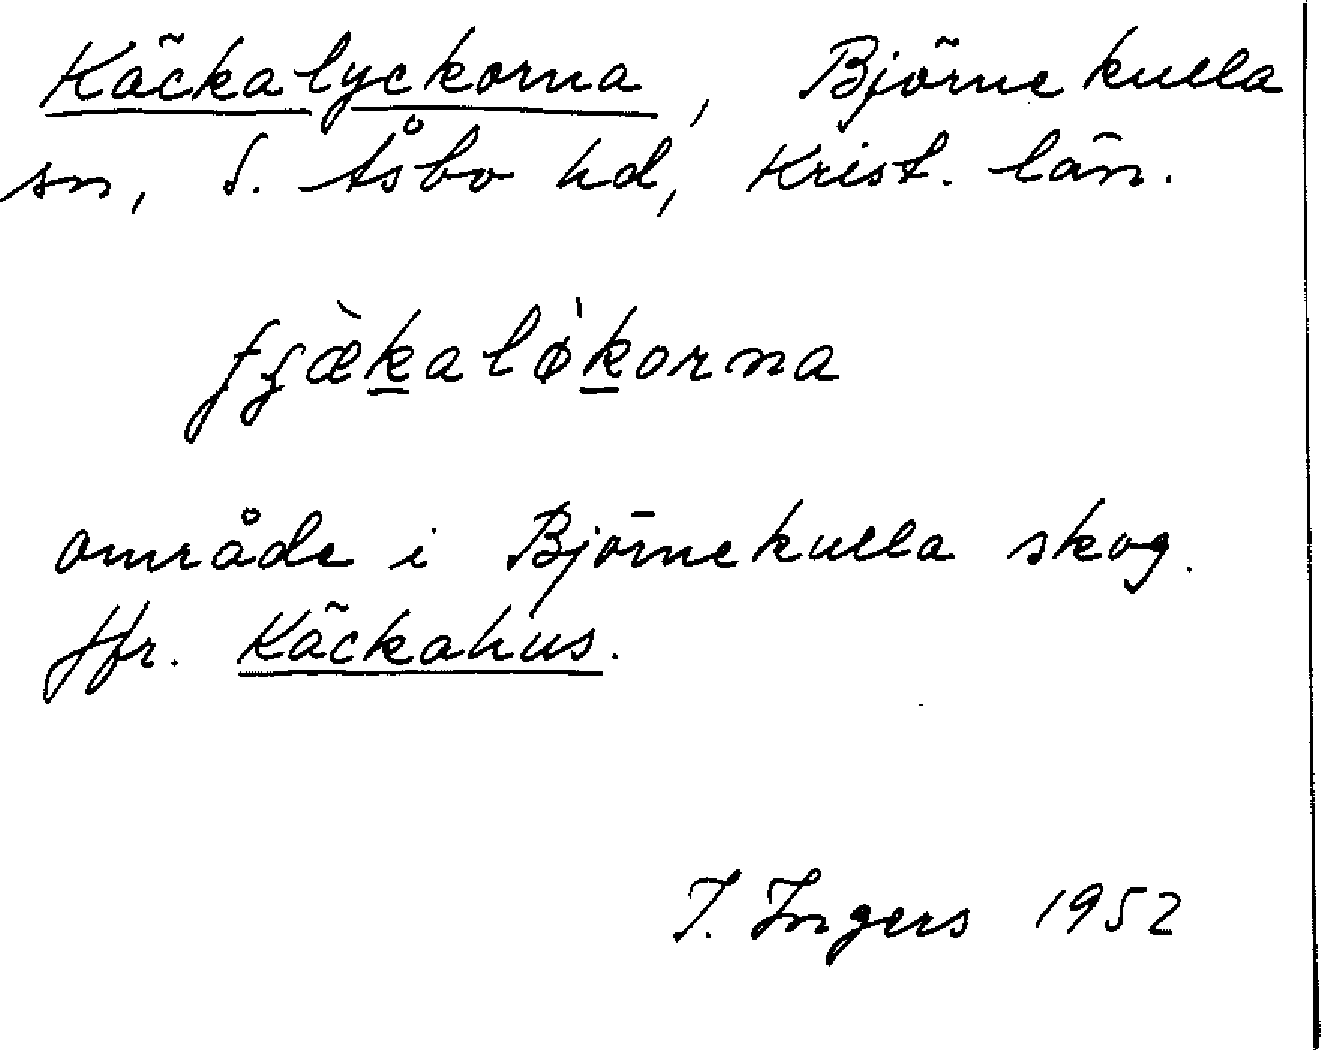 Käckalyckorna, Björnekulla
sn, S. Åsbo hd, Krist. län.
fʝæ̀kalø̍korna
område i Björnekulla skog.
Jfr. Käckahus.
I. Ingers 1952